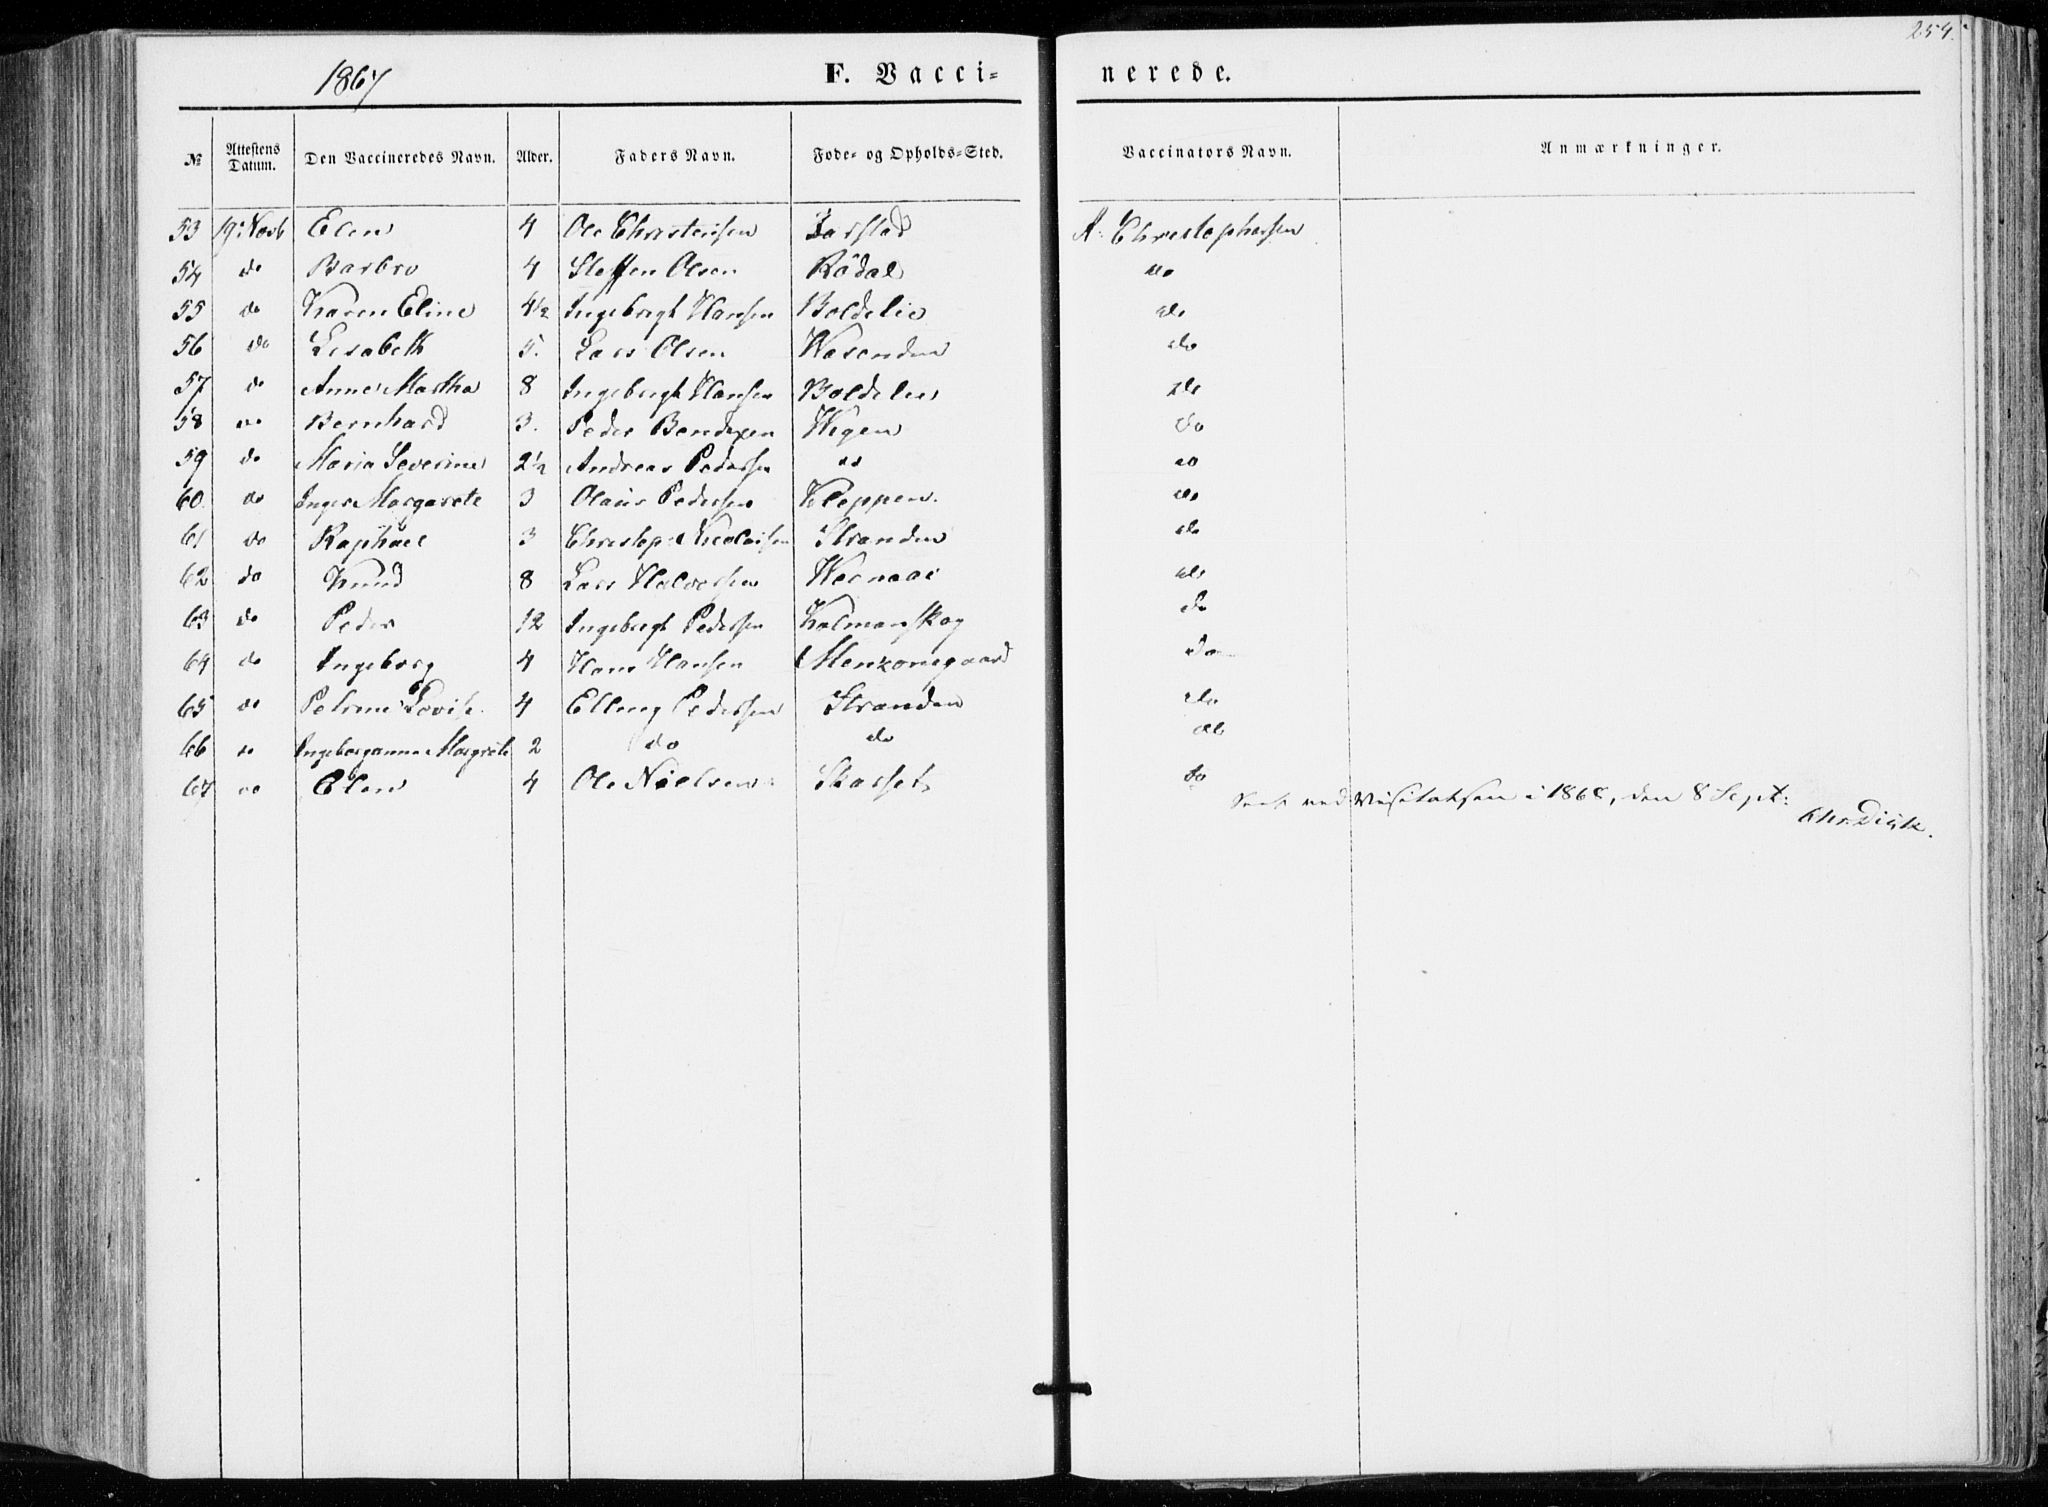 254.
1867 F. Vacci- nerede.
No Attestens Datum. Den Vaccineredes Navn. Alder. Faders Navn. Føde- og Opholds-Sted. Vaccinators Navn. Anmærkninger.
53 19: Novb Elen 4 Ole Christensen A. Christophersen
54 do Barbro 4 Steffen Olsen Rödal do
55 do Karen Eline 4½ Ingebrigt Hansen Boldelie do
56 do Lisabeth 5. Lars Olsen Wasenden do
57 do Anne Martha 8 Ingebrigt Hansen Boldelie do
58 do Bernhard 3. Peder Bendixen Wegen do
59 do Maria Severine 2½ Andreas Pedersen do do
60 do Inger Margarete 3 Olaus Pedersen Kleppen. do
61 do Raphael 3 Christop: Nicolaisen Stranden do
62 do Knud 8 Lars Halvorsen do
63 do Peder 12 Ingebrigt Pedersen Kalmanskog do
64 do Ingeborg 4 Hans Hansen Menzonsgaard do
65 do Petrine Lovise 4 Elling Pedersen Stranden do
66 do Ingeborganna Margrete 2 do do do
67 do Elen 4 Ole Nielsen Skarset do
Seet ved Visitatsen i 1868, den 8 Sept: